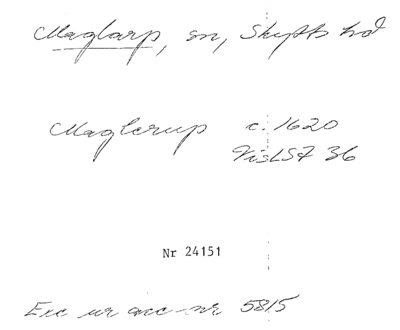 Maglarp, sn, Skytts hd
Maglerup c. 1620
VisLSF 36
Nr 24151
Exc ur acc nr 5815